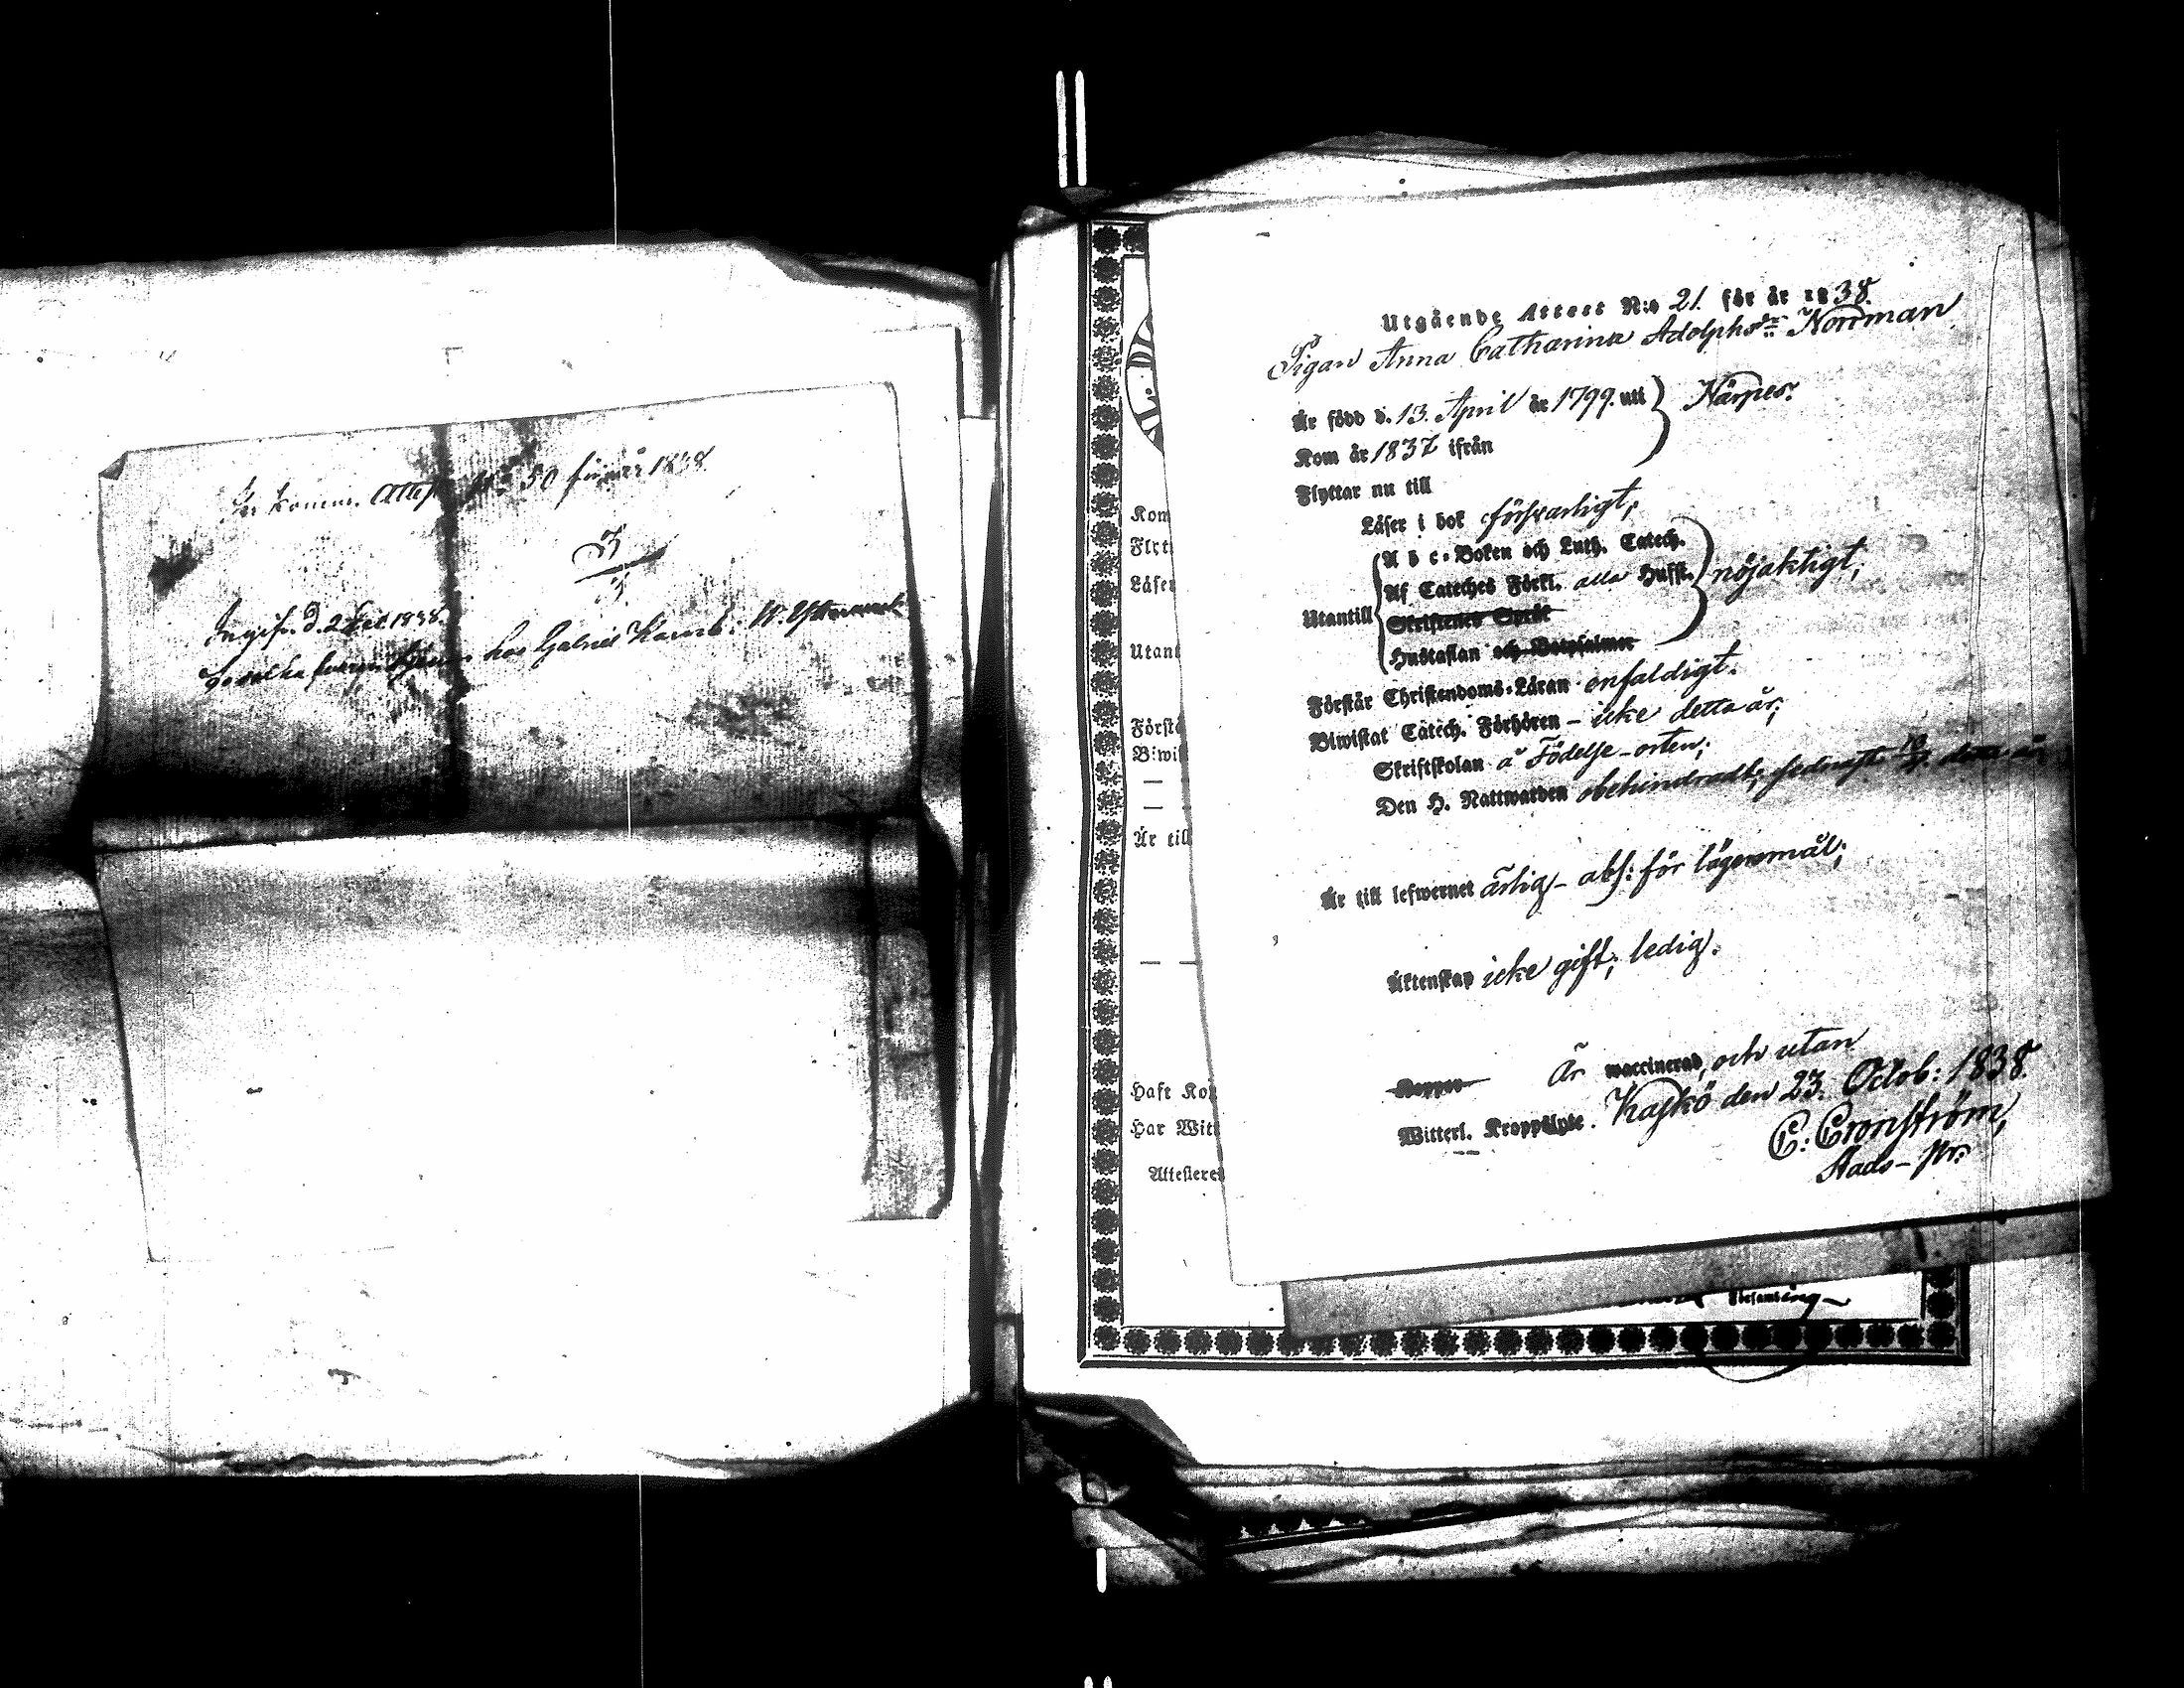 In komm. Attest N:o 50 för år 1838.
Ingifv. d. 2 Dec. 1838.
hos Gabriel
Utgående Attest N:o 21. för år 1838.
Pigan Anna Catharina Adolphsdr. Norrman
Är född d. 13. April år 1799. uti } Närpes.
Kom år 1837 ifrån
Flyttar nu till
Läser i bok försvarligt;
A b c-Boken och Luth. Catech.
Af Cateches Förkl. alla Hufst. nöjaktigt;
Utantill
Skriftenes Språk
Hustaflan och Botpsalmer
Förstår Christendoms-Läran enfaldigt.
Biwistat Catech. Förhören – icke detta år;
Skriftskolan å Födelse-orten;
Den H. Nattwarden obehindradt; sednast detta år;
Är till lefwernet ärlig – abs: för lägersmål;
Äktenskap icke gift; ledig.
Koppor Är waccinerad, och utan
Witterl. Kroppslyte. Kaskö den 23. Octob: 1838.
C: Cronström,
Stads-Pr:
Kom
Flytt
Läser
Utant
Förstå
Biwis
Är till
Haft Kop
Har Witt
Attesteres